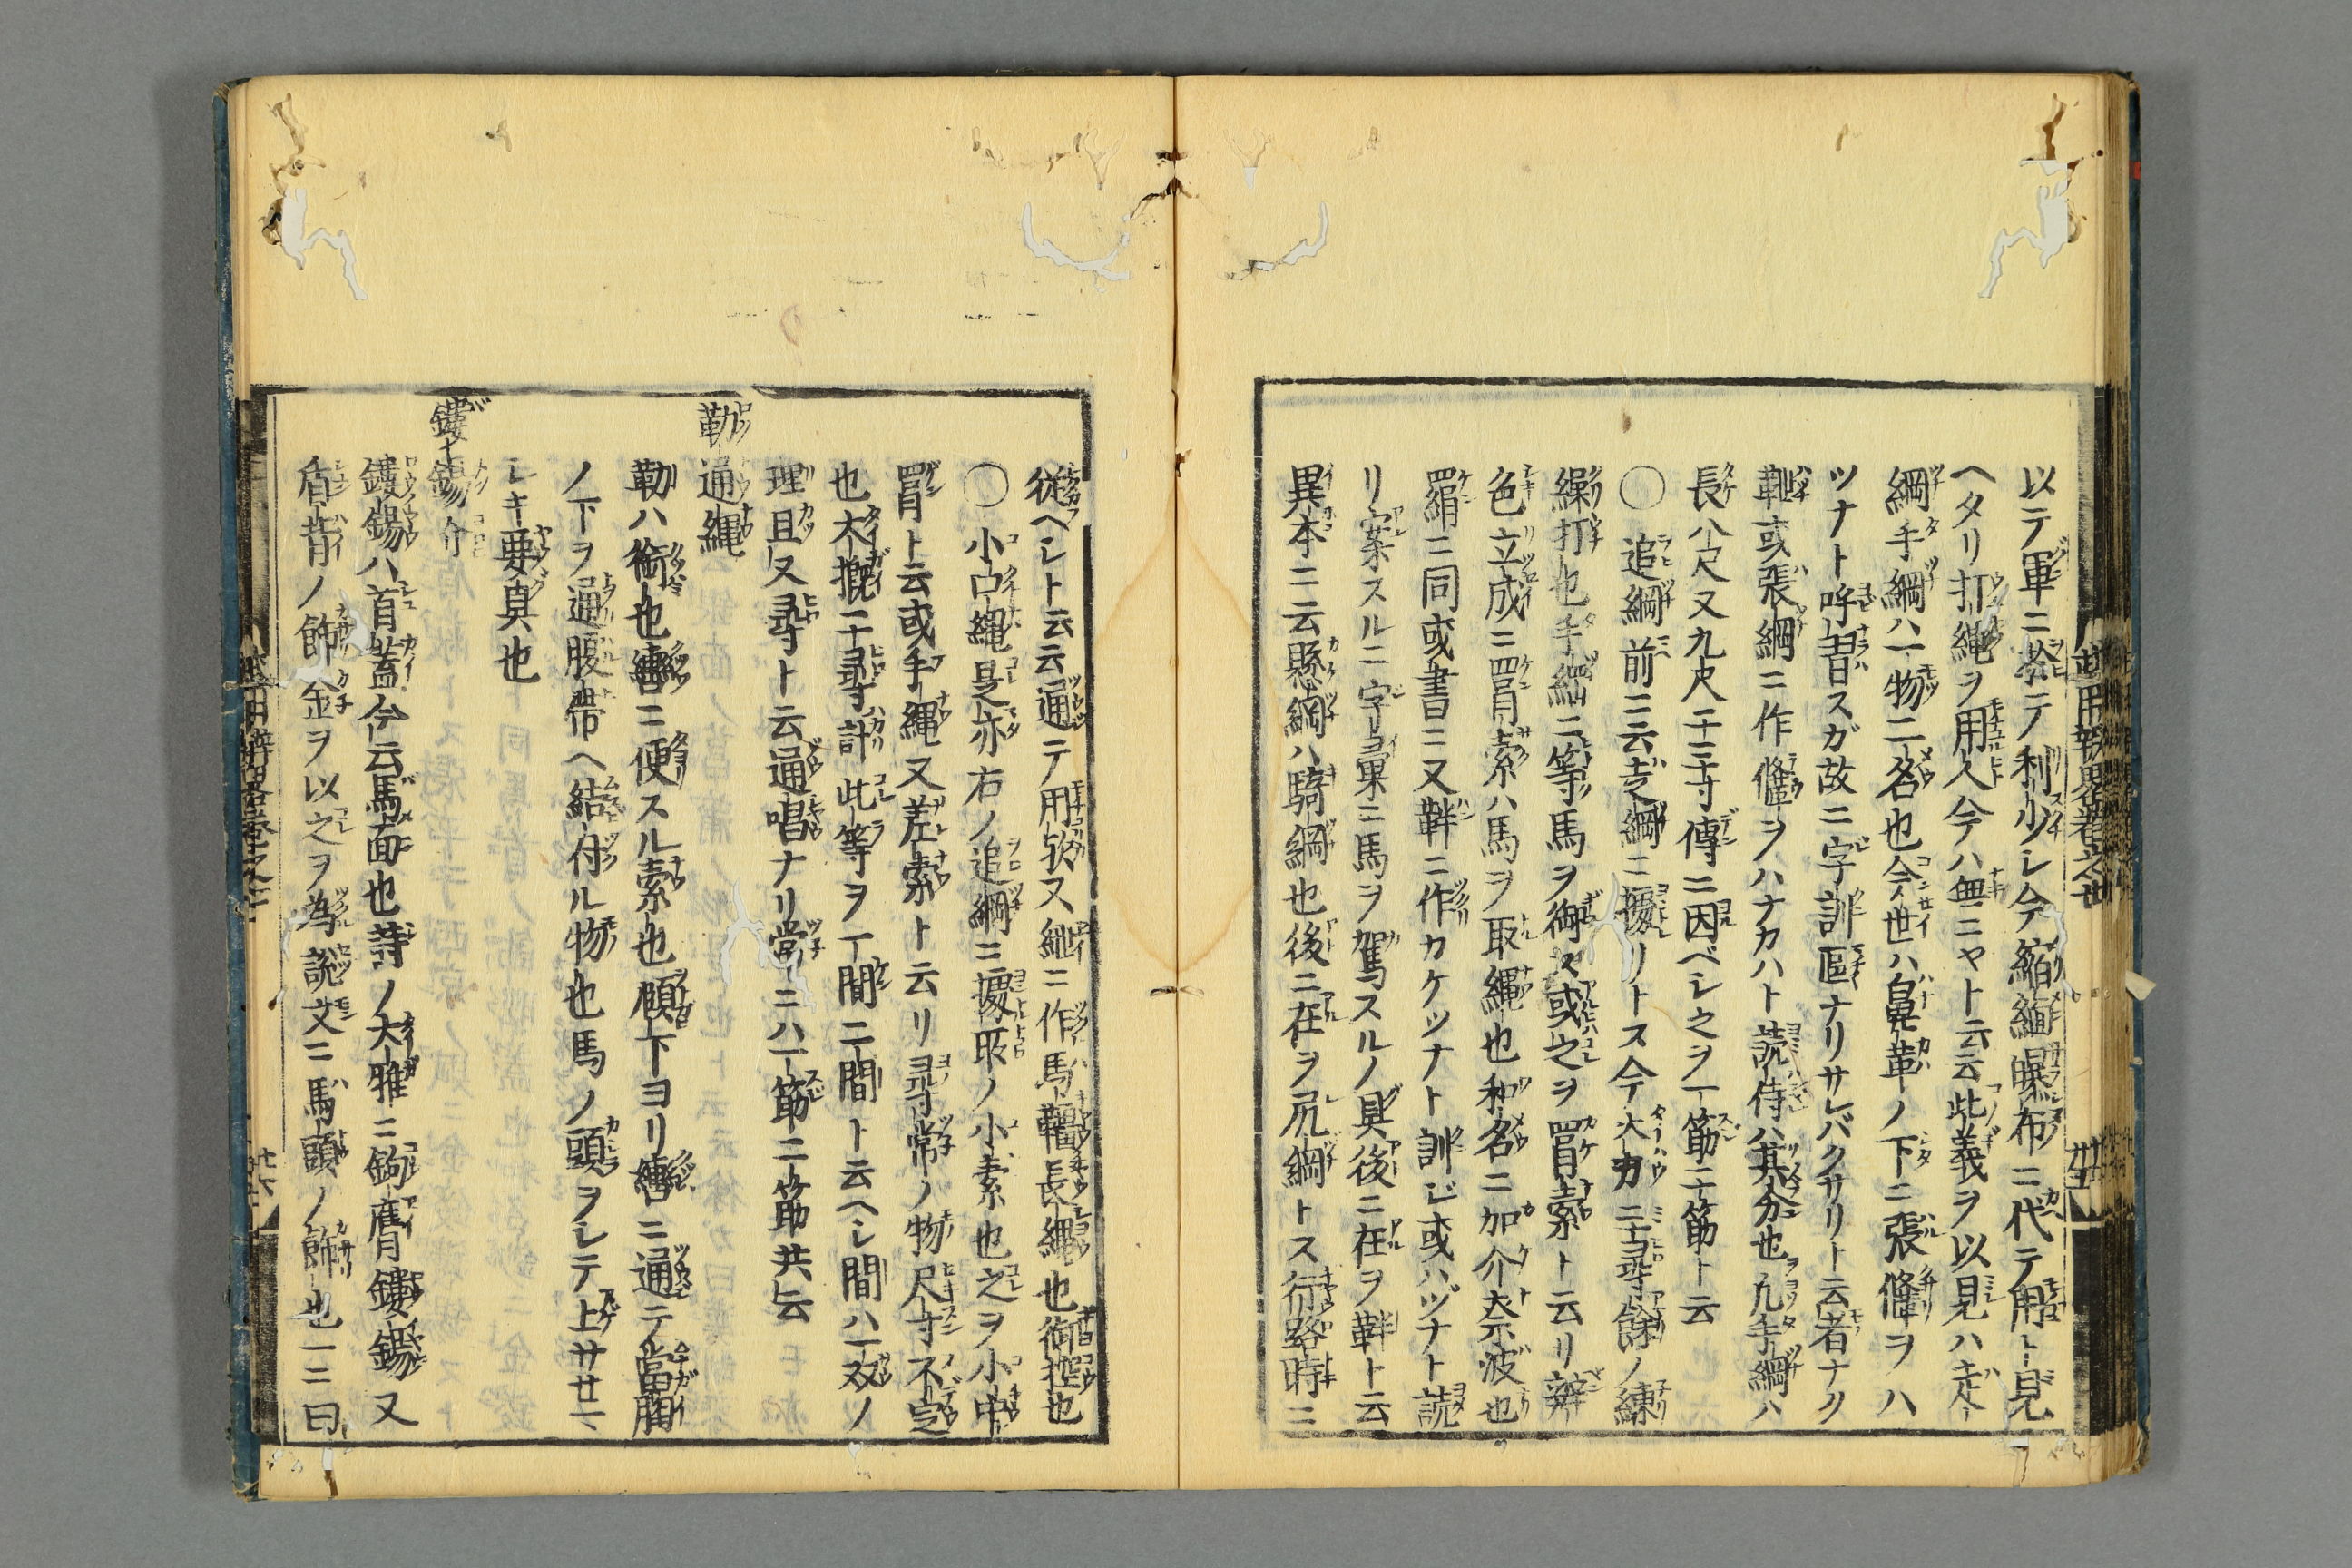 以テ軍ニ荅テ利少シ今縮緬曝布ニ代テ用ト見
ヘタリ打縄ヲ用人今ハ無ニヤト云云此義ヲ以見ハ
綱手綱ハ一物二名也今世ハ鼻革ノ下ニ張鞗ヲハ
ツナト呼習スガ故ニ字訓區ナリサレバクサリト云者ナク
或張綱ニ作鞗ヲハナカハト読侍ハ其分也凡手綱ハ
長八尺又九尺二十三寸傳ニ因ベシ之ヲ一筋二筋ト云
〇追綱前ニ云綱ニ據リトス今大カ二十尋餘ノ練
繰打也手縄ニ等馬ヲ御ス或之ヲ罥索ト云リ辨
色立成ニ罥索ハ馬ヲ取縄也和名ニ加介奈波也
羂ニ同或書ニ又絆ニ作カケヅナト訓ジ或ハヅナト読
リ案スルニ字彙ニ馬ヲ駕スルノ具後ニ在ヲ絆ト云
異本ニ云懸綱ハ騎綱也後ニ在ヲ尻綱トス行路時ニ
従ヘシト云云通テ用歟又紲ニ作馬韁長縄也御控也
〇小口縄是亦右ノ追綱ニ據取ノ小索也之ヲ小中
罥ト云或手縄又差索ト云リ尋常ノ物尺寸不定
也大概二十尋計此等ヲ一間二間ト云ヘシ間ハ双ノ
理且又尋ト云通唱ナリ常ニハ一筋二筋共云
勒通縄
勒ハ銜也轡ニ便スル索也頤下ヨリ轡ニ通テ當胸
ノ下ヲ通腹帯ヘ結付ル物也馬ノ頭ヲシテ上サセ
シキ要具也
鏤錫
鏤錫ハ首蓋今云馬面也詩ノ大雅ニ鉤膺鏤錫又
ノ飾金ヲ以之ヲ為説文ニ馬頭ノ飾也一ニ曰